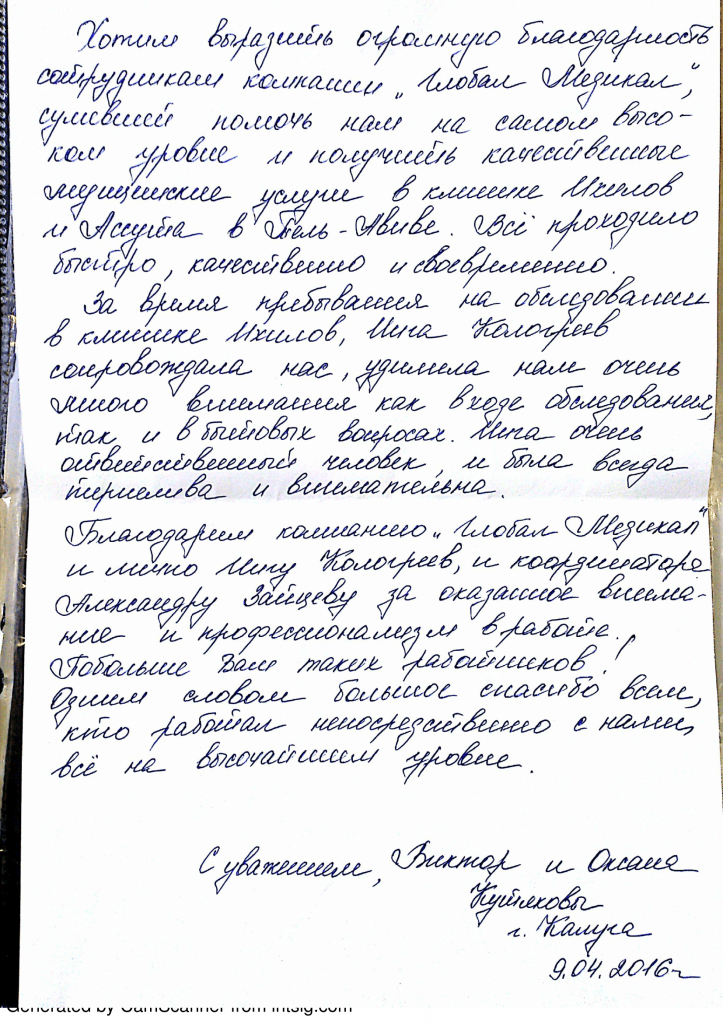 Хотим выразить огромную благодарность
сотрудникам компании „Глобал Медикал“,
сумевшей помочь нам на самом высо-
ком уровне и получить качественные
медицинские услуги в клинике Ихилов
и Ассута в Тель-Авиве. Всё проходило
быстро, качественно и своевременно.
За время пребывания на обследовании
в клинике Ихилов, Инга Кологреев
сопровождала нас, уделила нам очень
много внимания как в ходе обследования,
так и в бытовых вопросах. Инга очень
ответственный человек, и была всегда
терпелива и внимательна.
Благодарим компанию „Глобал Медикал“
и лично Ингу Кологреев, и координатора
Александру Зайцеву за оказанное внима-
ние и профессионализм в работе.
Побольше Вам таких работников!
Одним словом большое спасибо всем,
кто работал непосредственно с нами,
всё на высочайшем уровне.
С уважением, Виктор и Оксана
Кутяковы
г. Калуга
9.04.2016г
Generated by CamScanner from intsig.com